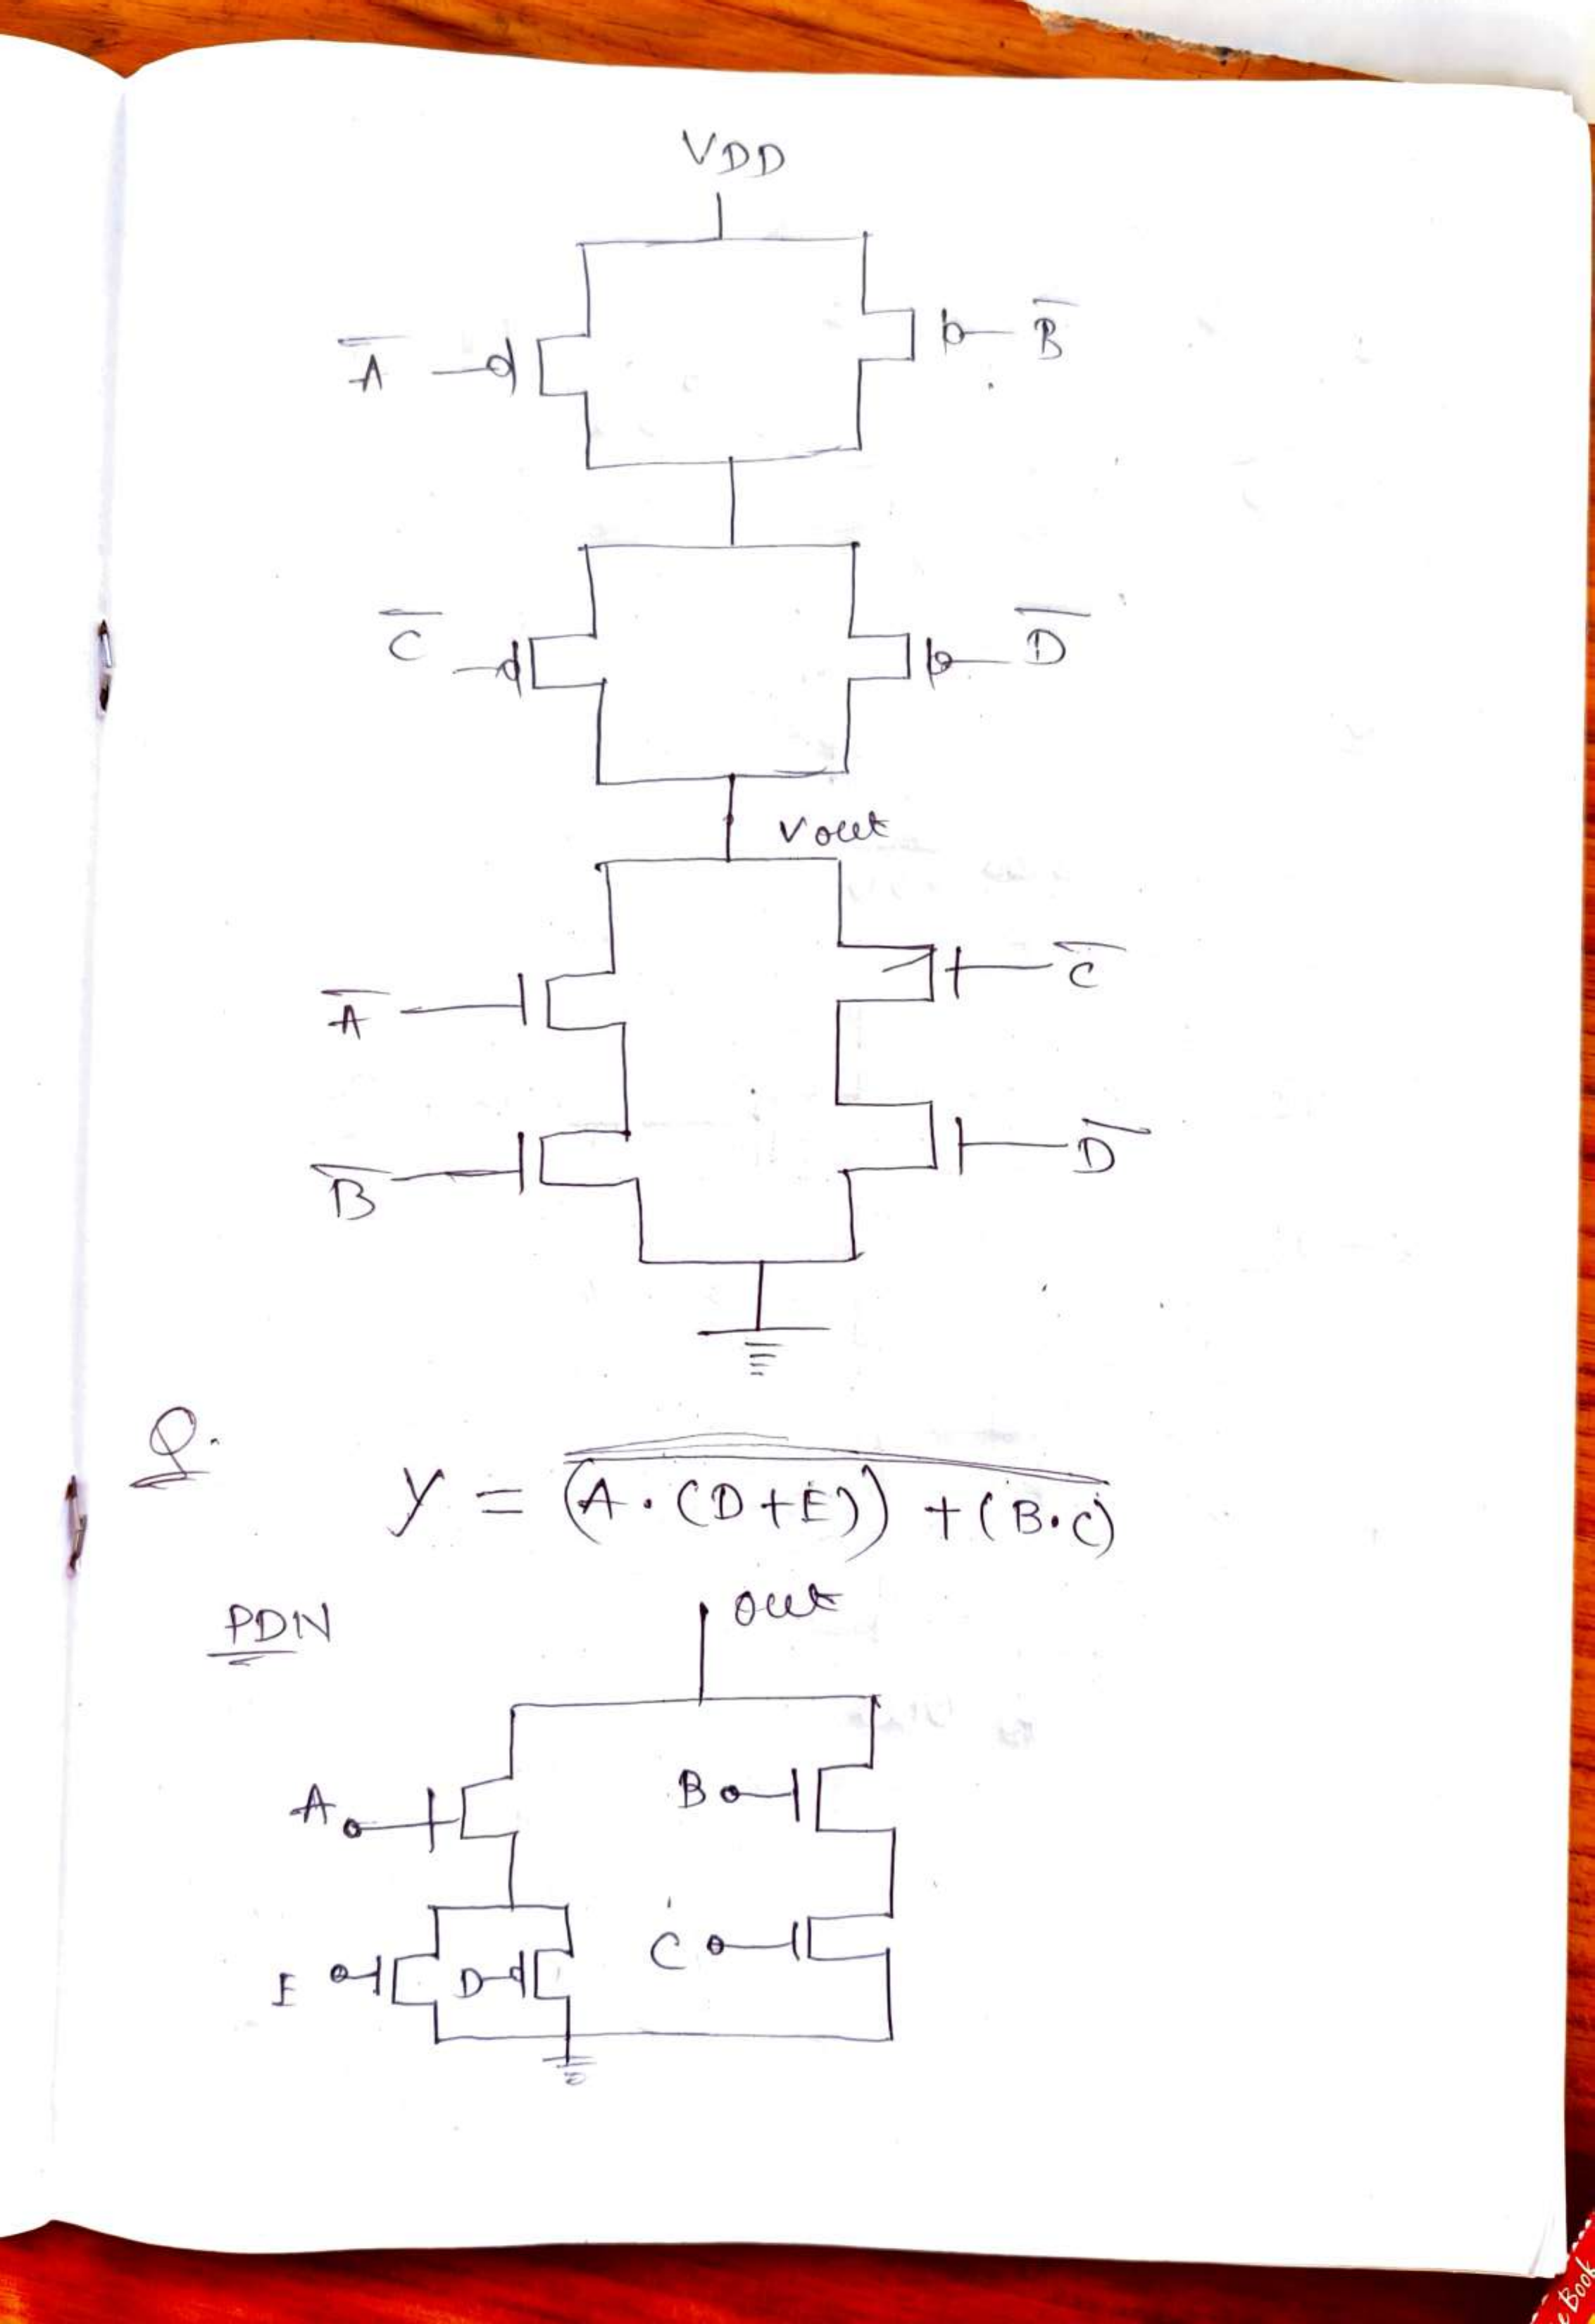 VDD
A̅ B̅
C̅ D̅
Vout
A̅ C̅
B̅ D̅
Q. y = \overline{(A·(D+E))+(B·C)}
PDN out
A B
E D C
e Book